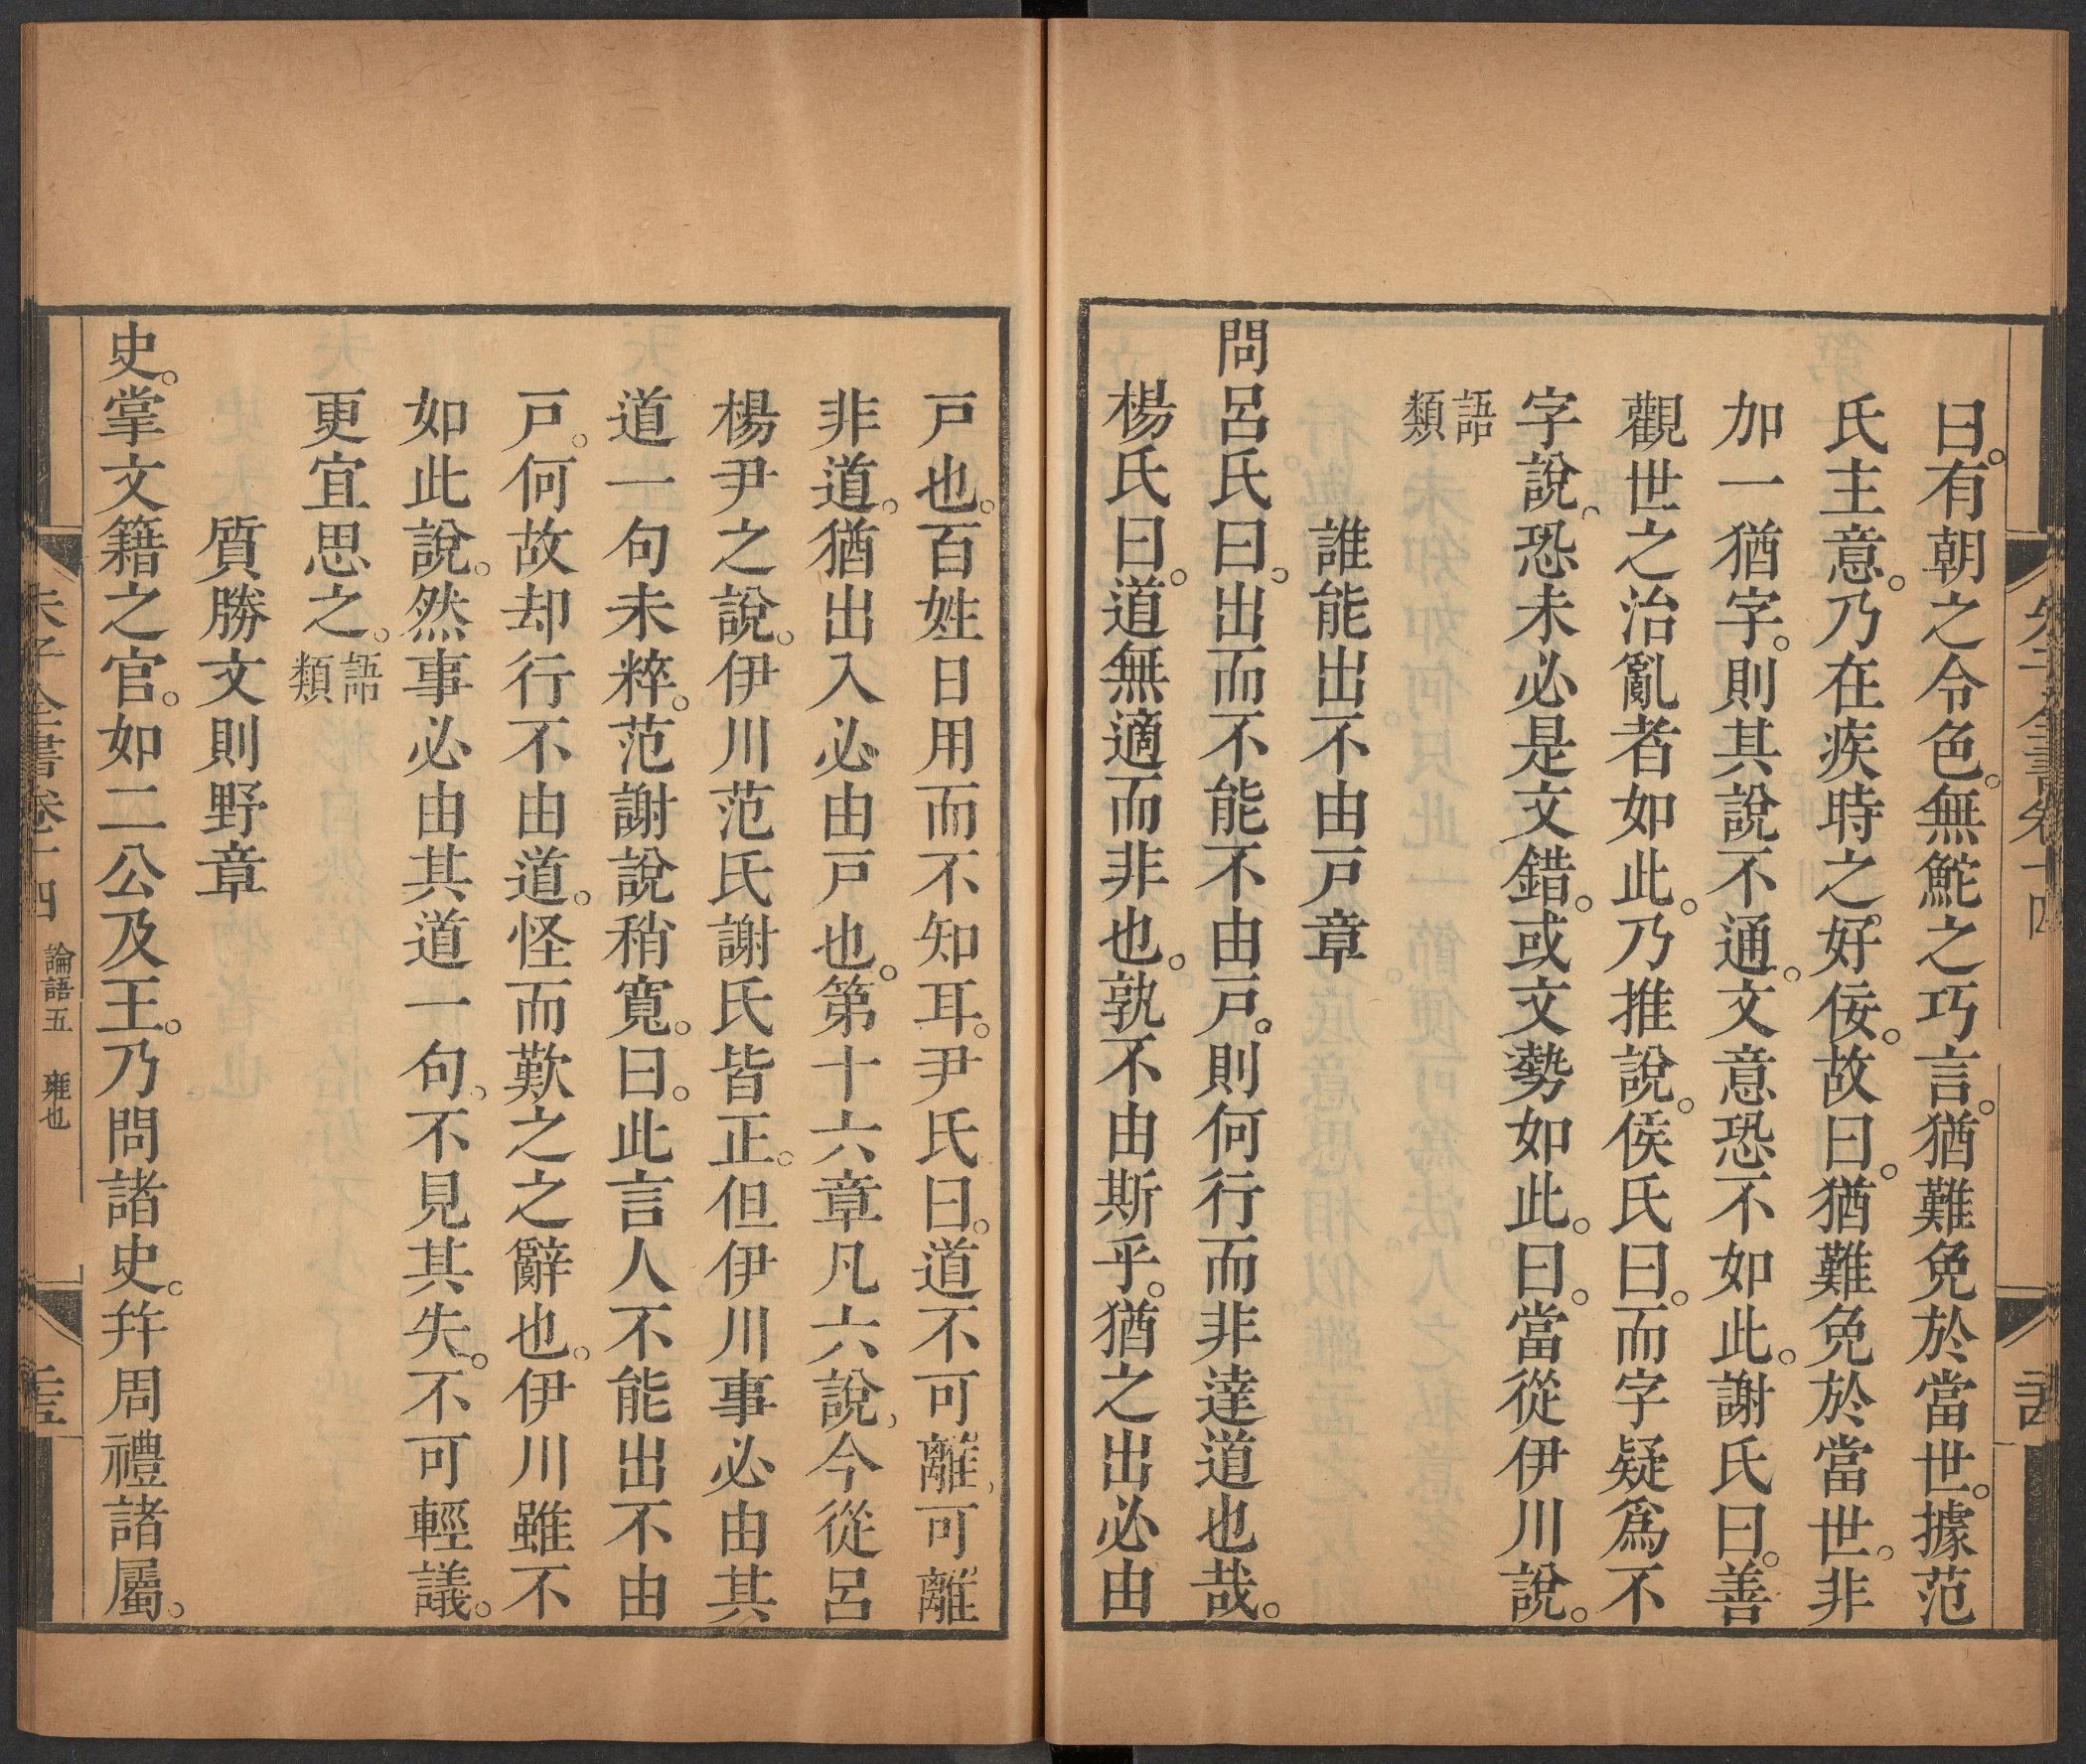 曰。有朝之令色。無鮀之巧言。猶難免於當世。據范
氏主意。乃在疾時之好佞。故曰。猶難免於當世。非
加一猶字。則其說不通。文意恐不如此。謝氏曰。善
觀世之治亂者如此。乃推說。侯氏曰。而字疑爲不
字說、恐未必是文錯。或文勢如此。曰。當從伊川說。
語類
誰能出不由戸章
問呂氏曰。出而不能不由戸。則何行而非達道也哉。
楊氏曰。道無適而非也。孰不由斯乎。猶之出必由
戸也。百姓日用而不知耳。尹氏曰。道不可離、可離
非道。猶出入必由戸也。第十六章凡六說、今從呂
楊尹之說。伊川范氏謝氏皆正。但伊川事必由其
道一句未粹。范謝說稍寬。曰。此言人不能出不由
戸。何故却行不由道。怪而歎之之辭也。伊川雖不
如此說。然事必由其道一句、不見其失。不可輕議。
更宜思之。語類
質勝文則野章
史。掌文籍之官。如二公及王。乃問諸史。幷周禮諸屬。
朱子全書卷十四 論語五 雍也